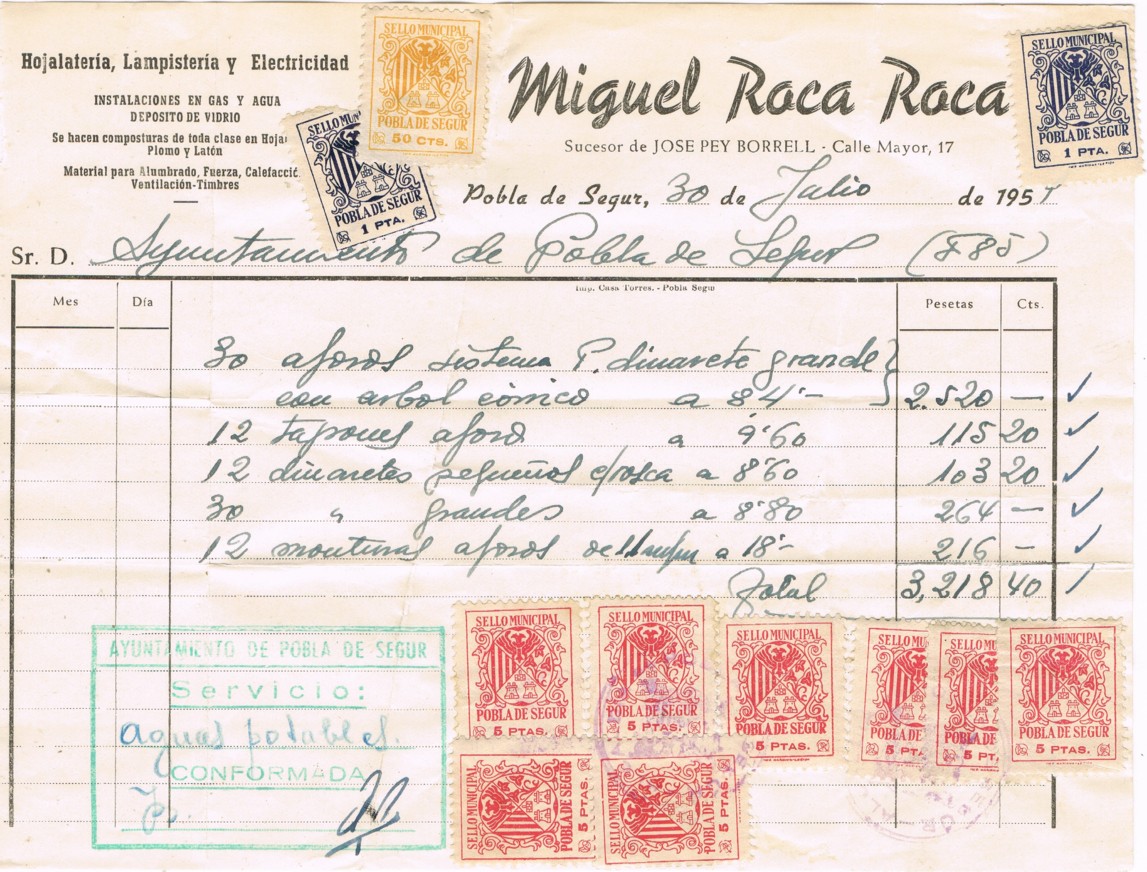 Hojalatería, Lampistería y Electricidad
INSTALACIONES EN GAS Y AGUA
DEPOSITO DE VIDRIO
Se hacen composturas de toda clase en Hoja
Plomo y Latón
Material para Alumbrado, Fuerza, Calefacció
Ventilación-Timbres
SELLO MUN
POBLA DE SEGUR
1 PTA.
SELLO MUNICIPAL
POBLA DE SEGUR
50 CTS.
Miguel Roca Roca
Sucesor de JOSE PEY BORRELL - Calle Mayor, 17
SELLO MUNICIPAL
POBLA DE SEGUR
1 PTA.
Pobla de Segur, 30 de Julio de 195
Sr. D. Ayuntamiento de Pobla de Segur (F85)
Imp. Casa Torres. - Pobla Segur
Mes Día Pesetas Cts.
30 aforos sistema P. dinarete grande
con arbol cónico a 84'- 2.520 —
12 tapones aforo a 9'60 115 20
12 dinaretes pequeños c/rosca a 8'60 103 20
30 " grandes a 8'80 264 —
12 monturas aforos de a 18'- 216 —
Total 3,218 40
AYUNTAMIENTO DE POBLA DE SEGUR
Servicio:
aguas potables.
CONFORMADA
SELLO MUNICIPAL
POBLA DE SEGUR
5 PTAS.
SELLO MUNICIPAL
POBLA DE SEGUR
5 PTAS.
SELLO MUNICIPAL
POBLA DE SEGUR
5 PTAS.
SELLO MU
POBLA DE
5 PT
SELLO MU
POBLA DE
5 PT
SELLO MUNICIPAL
POBLA DE SEGUR
5 PTAS.
SELLO MUNICIPAL
POBLA DE SEGUR
5 PTAS.
SELLO MUNICIPAL
POBLA DE SEGUR
5 PTAS.